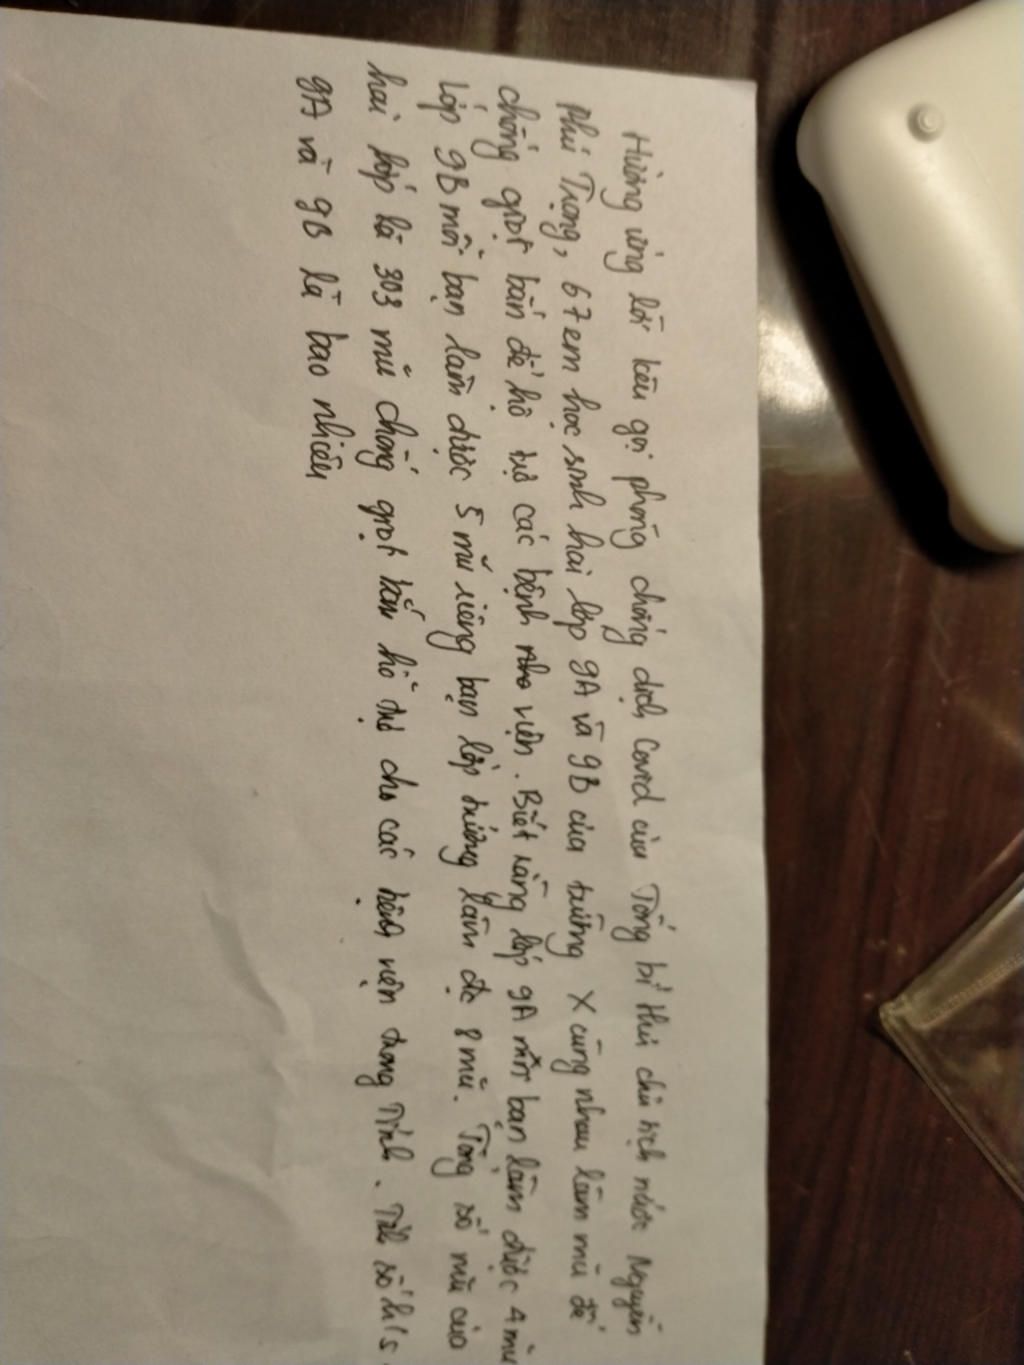 Hưởng ứng lời kêu gọi phòng chống dịch Covid của Tổng bí thư chủ tịch nước Nguyễn
Phú Trọng, 67 em học sinh hai lớp 9A và 9B của trường X cùng nhau làm mũ để
chống giọt bắn để hỗ trợ các bệnh viện. Biết rằng lớp 9A mỗi bạn làm được 4 mũ
lớp 9B mỗi bạn làm được 5 mũ riêng bạn lớp trưởng làm đc 8 mũ. Tổng số mũ của
hai lớp là 303 mũ chống giọt bắn hỗ trợ cho các bệnh viện trong Tỉnh. Tính số h/s
9A và 9B là bao nhiêu